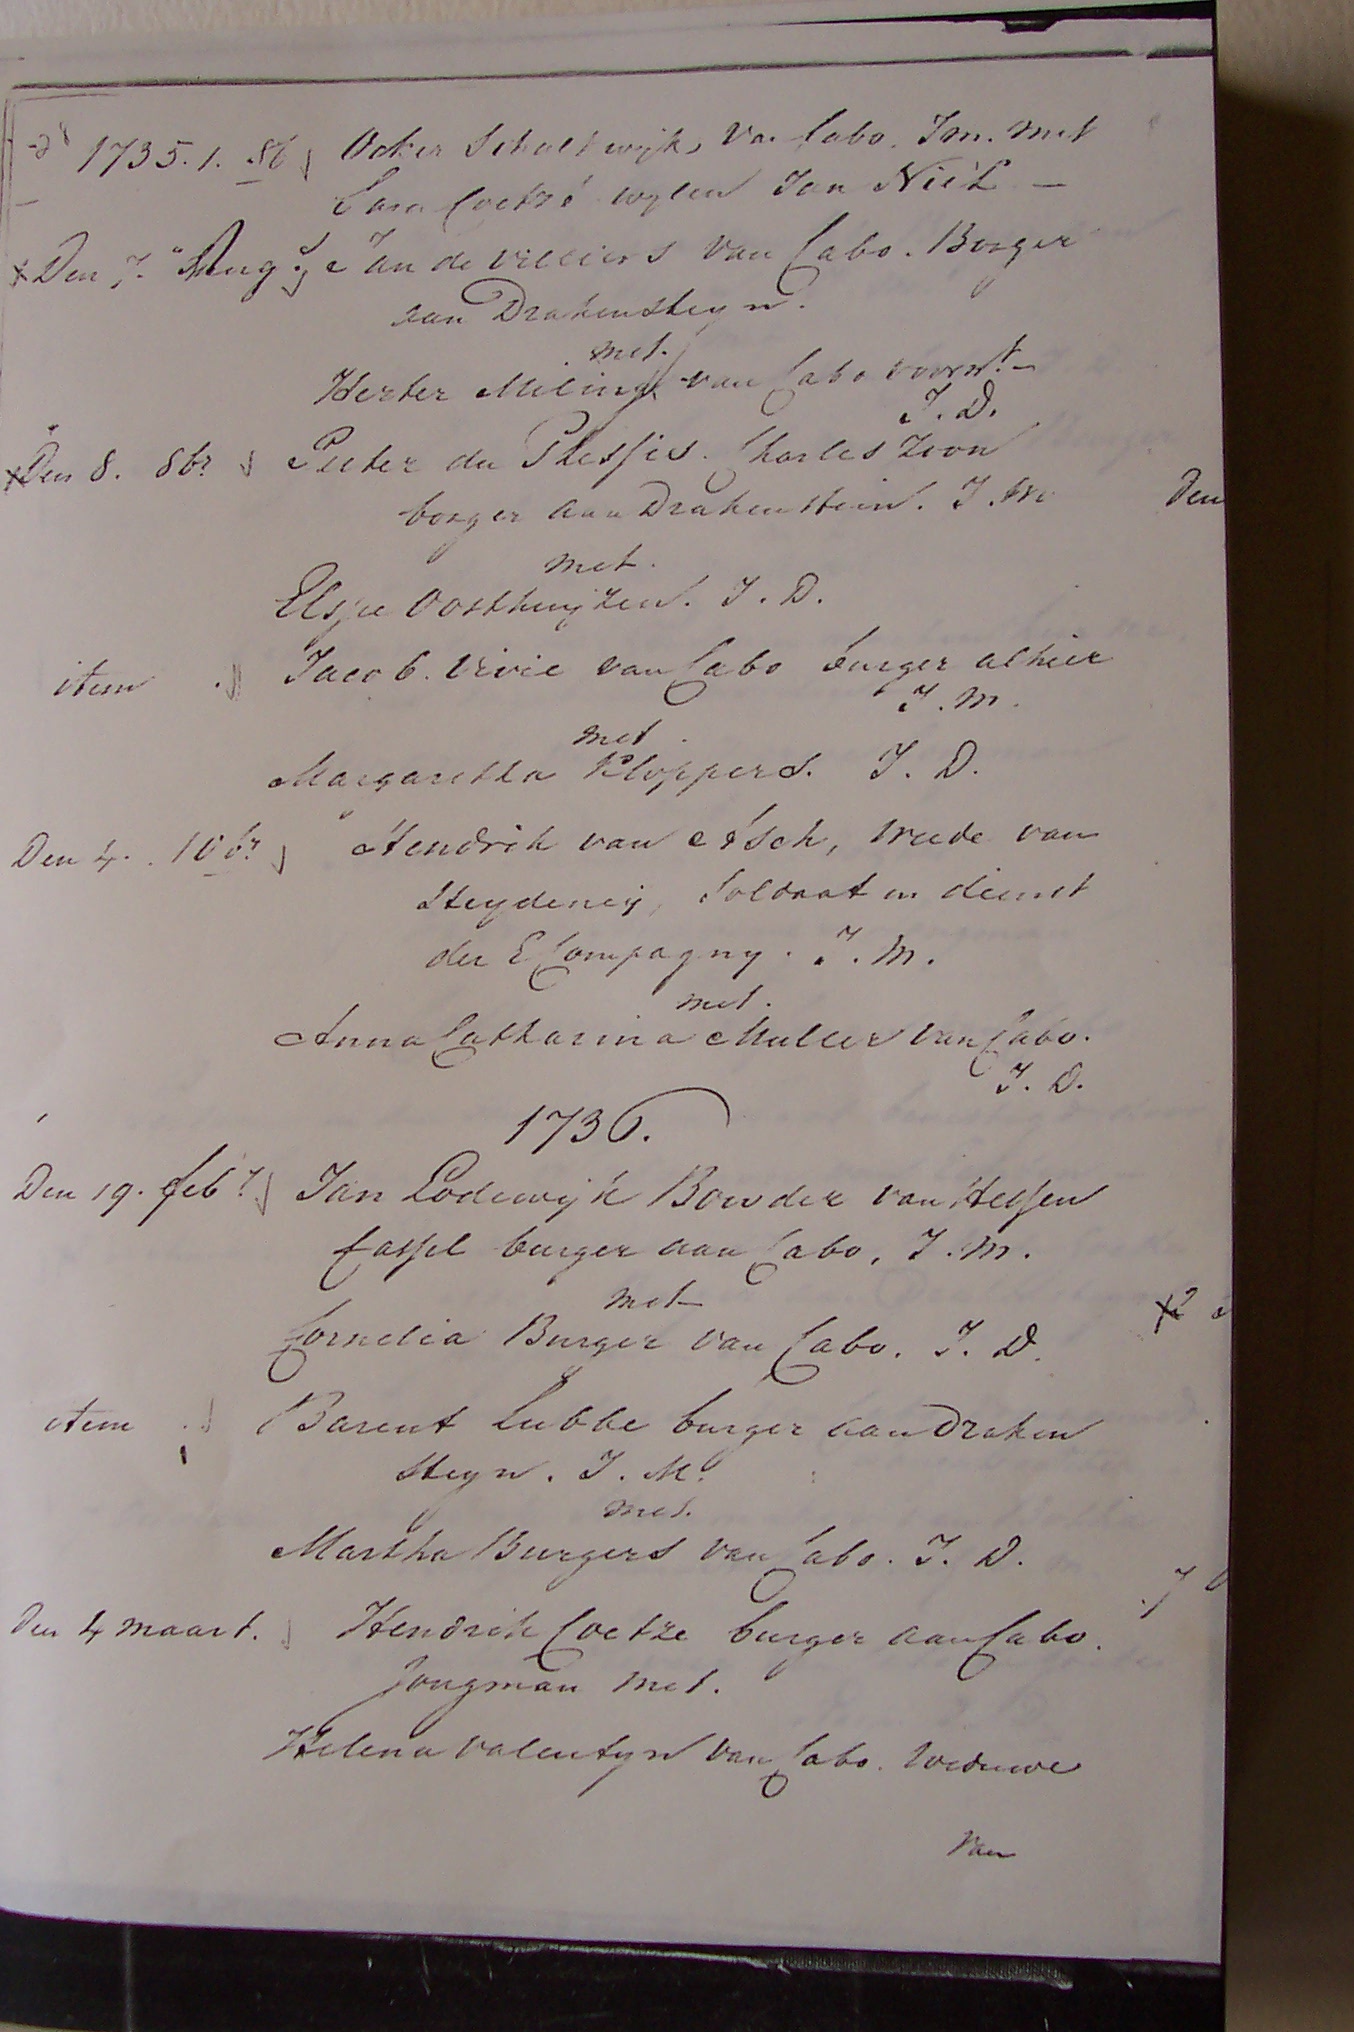 1735. 1. 8b Ocker Schalkwijk, Van Cabo. Jm. met
Sara Coetzé wylen Jan Niél —
Den 7. Aug Jan de Villiers van Cabo. Borger
aan Drakensteyn.
met
Herter van Cabo voornt
J. D.
Den 8. 8br Pieter du Plessis. Charles zoon
borger aan Drakenstein. J. M
met.
Elsje Oosthuyzen. J. D.
item Jacob. Vivie van Cabo burger alhier
J. M.
met.
Margaretha Kloppers. J. D.
Den 4. 10br Hendrik van Asch, van
Heydenrij, Soldaat in dienst
der E Compagny. J. M.
met.
Anna Catharina Muller van Cabo.
J. D.
1736.
Den 19. febr Jan Lodewijk Bouder van Hessen
Cassel burger aan Cabo, J. M.
met
Cornelia Burger van Cabo. J. D.
item Barent Lubbe burger aan Draken
steyn. J. M.
met.
Martha Burgers van Cabo. J. D.
Den 4 maart. Hendrik Coetze burger aan Cabo.
Jongman met.
Helena Valentyn van Cabo. Weduwe
van
Den